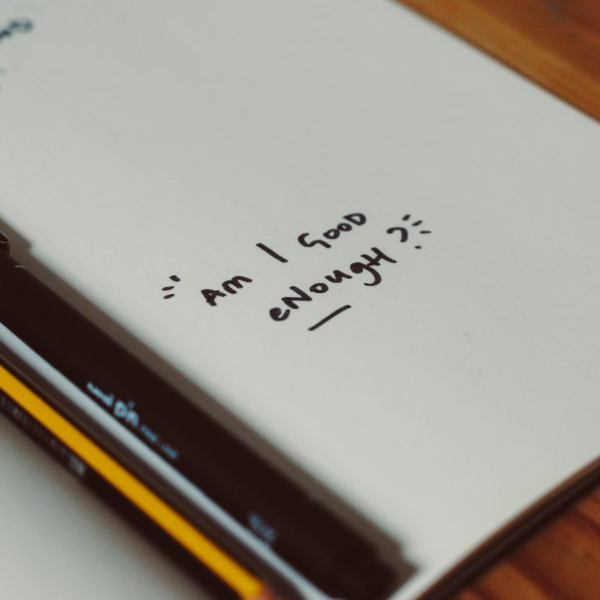 "Am I Good
eNougH?"